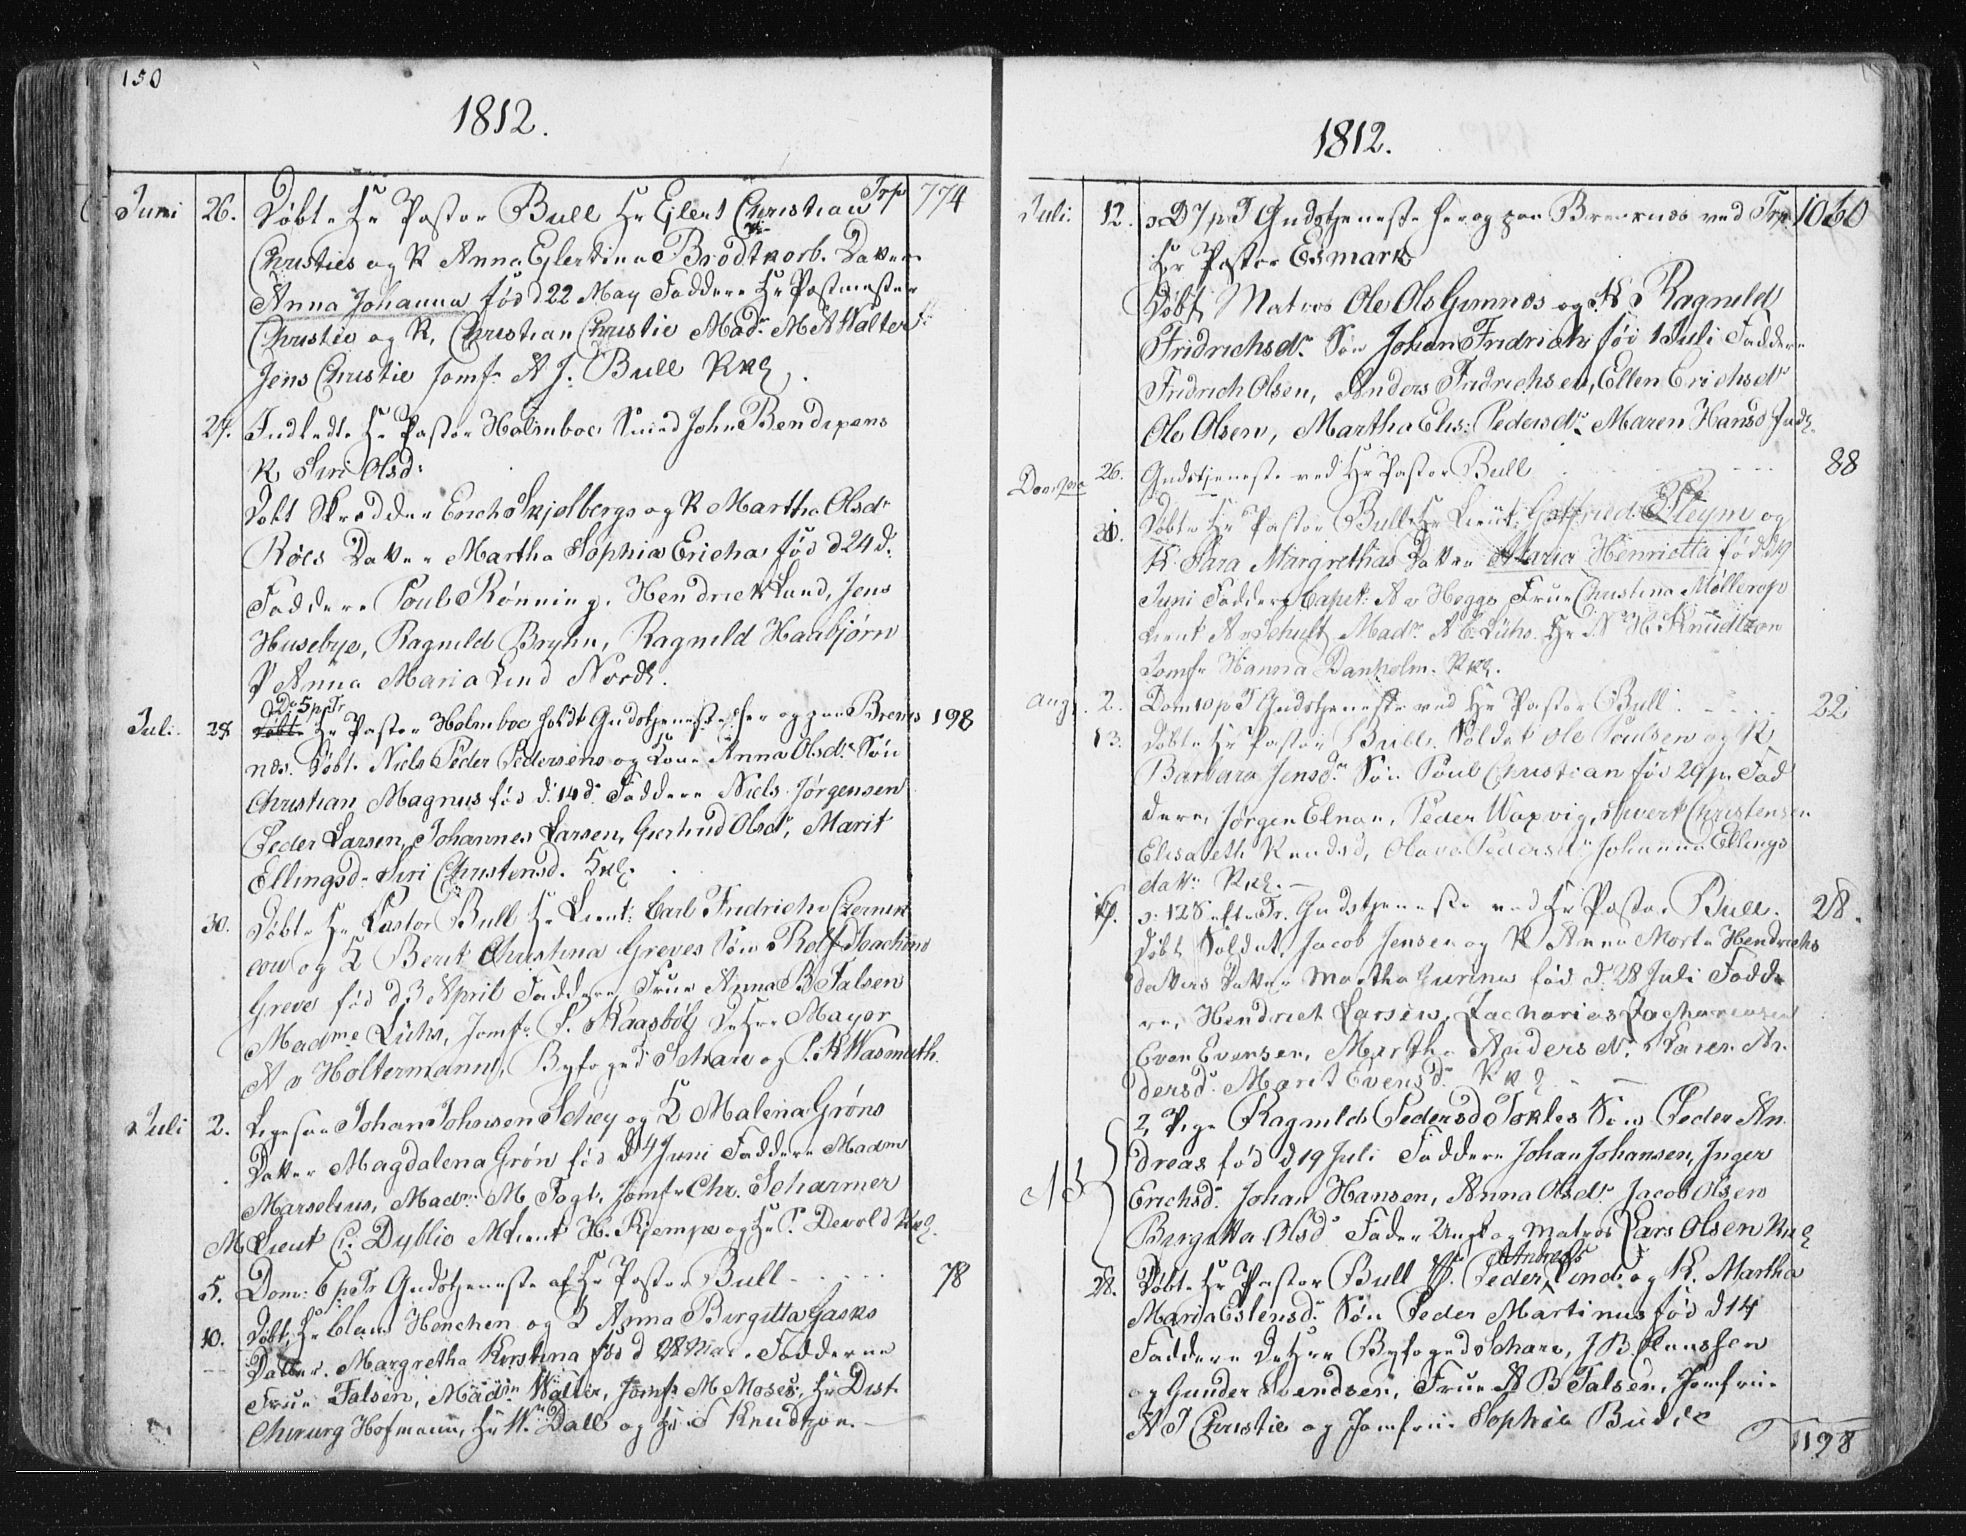 150
1812.
Juni 26. Døbte Hr Pastor Bull Hr Ejlert Christian Trp 774
Christies og K Anna Ejlertina Brodtkorb. Datter
Anna Johanna fød d 22 May Faddere Hr Postmester
Christie og K, Christian Christie Mads M A Walter
Jens Christie Jomfr A J. Bull
27. Indledte Hr Pastor Holmboe Smed John
K Siri Olsd:
Døbt Skredder Erich Skjølbergs og K Martha Olsdr
Røes Datter Martha Sophia Ericha fød d 24 d.
Faddere Poul Rønning, Hendrick Lund, Jens
Husebye, Ragnild Bryhn, Ragnild Haabjørn
P Anna Maria Lind
D. 5 p Tr
Juli. 28 Døbt Hr Pastor Holmboe holdt Gudstjeneste her og paa Brems 198
nes. Døbt Niels Peder Pedersens og Kone Anna Olsdr Søn
Christian Magnus fød d. 14 d. Faddere Niels Jørgensen
Peder Larsen, Johannes Larsen, Gurtrud Olsdr, Marit
Ellingsd. Siri Christensd.
30. Døbte Hr Pastor Bull Hr Lieut: Carl Fridrich
og K Berit Christina Greves Søn Rolf Joachim
Greve fød d 3 April Faddere Frue Anna B Falsen
Madme Lühs, Jomfr P. Kaasbøl Hrr Mayor
A v Holtermann, Byfoged Schare og P. K Wasmuth.
Juli 2. Johan Johnsen Schey og K Malena Grøns
Datter Magdalena Grøn fød d 4 Juni Faddere Madm
Marselius, Madm M Fogt, Jomfr Chr. Scharmer
M Lieut C. Dyblie M Lieut H. Kjempe og Hr P. Devold
5. Dom: 6 p Tr Gudstjeneste af Hr Pastor Bull 78
10. Døbt Hr Claus Henchen og K Anna Birgitta Gasks
Datter. Margretha Kirstina fød d 28 Mai. Fadderne
Frue Falsen, Madm Walter, Jomfr M Moses, Hr Dist
Chirurg Hofmann, Hr N. Dall og Hr S Knudtzon.
1812.
Juli. 12. D 7 p T Gudstjeneste her og paa Bremsnes ved Trp. 1060
Hr Pastor Esmark
Døbt Matros Ole Ols Gimnes og K Ragnild
Fridrichsdr Søn Johan Fridrich fød 1 Juli Faddere
Fridrich Olsen, Anders Fridrichsen, Ellen Erichsdr
Ole Olsen, Martha Elis: Pedersdr Maren Hansd
26. Gudstjeneste ved Hr Pastor Bull 88
30. Døbte Hr Pastor Bull Hr Lieut: Gotfried Pleym og
K Sara Margrethas Datter Maria Henrietta fød d 19
Juni Faddere Capt: A v Hegge Frue Christina Møllerop
Lieut A v Schult Madm A C Lühs. Hr N H Knudtzon
Jomfr Hanna Danholm.
Aug. 2. Dom 10 p T Gudstjeneste ved Hr Pastor Bull 22
13. Døbte Hr Pastor Bull. Soldat Ole Poulsen og K
Barbara Jensdr Søn Poul Christian fød 29 p. Fad
dere, Jørgen Elnan, Peder Waxvig, Sivert Christensen
Elisabeth Knudsd, Olava Pedersdr Johanna Ellings
datter
D: 12 S efter Tr. Gudstjeneste ved Hr Pastor Bull. 28.
Døbt Soldat Jacob Jensen og K Anne Marta Hendrichs
datters Datter Martha Gurina fød d. 28 Juli Fadde
re, Hendrich Larsen, Zacharias Zachariasen
Even Evensen, Martha Andersdr. Karen An
dersd. Marit Evensd.
NB 2, Pige Ragnild Pedersd Sokles Søn Peder An
dreas fød d 19 Juli Faddere Johan Johansen, Inger
Erichsd. Johan Hansen, Anna Olsdr Jacob Olsen
Birgitta Olsd. Fader Ungk og Matros Lars Olsen
Andreas
28. Døbte Hr Pastor Bull Hr. Peder Lind og K. Martha
Maria Eslensd. Søn Peder Martinus fød d 14
Faddere Hrr Byfoged Schare, J B Clausen
og Gunder Svendsen, Frue A B Falsen, Jomfrue
A J Christie og Jomfrue Sophia Budde
1198